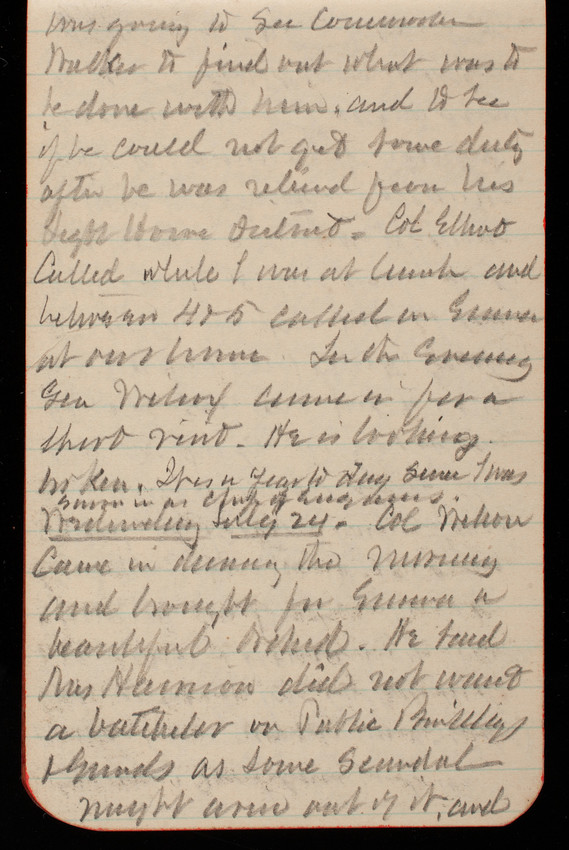 was going to see Commodore
Walker to find out what was to
be done with him, and to see
if he could not get some duty
after he was relieved from his
Light House District. Col Elliot
Called while I was at lunch and
between 4 & 5 called on Emma
at our home In the Evening
Gen Wilcox came in for a
short visit. He is looking
broken. It is a year to day since I was
sworn in as Chief of Engineers.
Wednesday July 24. Col Wilson
Came in during the morning
and brought for Emma a
beautiful Orchid. He said
Mrs Harrison did not want
a batchelor on Public Buildings
& Grounds as some Scandal
might arise out of it, and